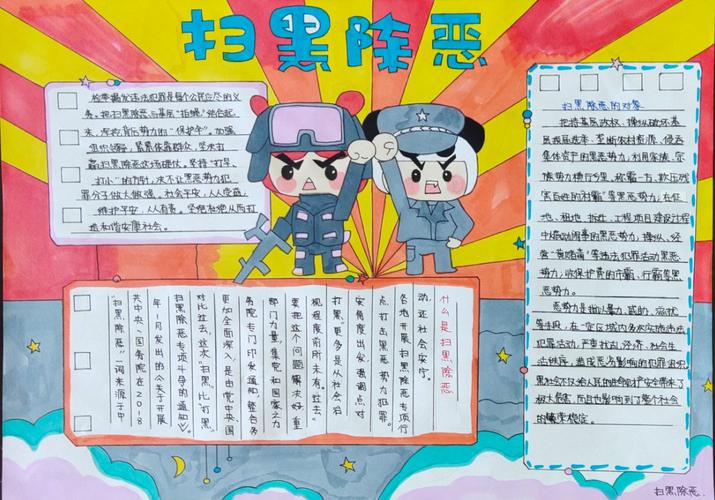 扫黑除恶
检举揭发违法犯罪是每个公民应尽的义
务。把扫黑除恶与基层"拍蝇"结合起
来,深挖背后势力的"保护伞"。加强
组织领导,紧紧依靠群众,坚决打
赢扫黑除恶这场硬仗。坚持"打早、
打小"的方针,决不让黑恶势力犯
罪分子做大做强。社会平安,人人受益,
维护平安,人人有责。坚定和绝从而打
造和谐安康社会。
什么是扫黑除恶
"扫黑除恶"一词来源于中
共中央、国务院在2018
年1月发出的《关于开展
扫黑除恶专项斗争的通知》。
对比过去,这次"扫黑"比"打黑"
更加全面深入,是由党中央国
务院专门印发通知,整合各
部门力量,集党和国家之力
要把这个问题解决好,重
视程度前所未有。过去"
打黑"更多是从社会治
安角度出发,强调点对
点,打击黑恶势力犯罪。
各地开展扫黑除恶专项行
动,还社会安宁。
扫黑除恶的对象
把持基层政权、操纵破坏基
层换届选举、垄断农村资源、侵吞
集体资产的黑恶势力,利用家族、宗
族势力横行乡里、称霸一方、欺压残
害百姓的"村霸"等黑恶势力,在征
地、租地、拆迁、工程项目建设过程
中煽动闹事的黑恶势力,操纵、经
营"黄赌毒"等违法犯罪活动黑恶
势力,收保护费的市霸、行霸等黑
恶势力。
恶势力是指以暴力、威胁、滋扰
等手段,在一定区域内多次实施违法
犯罪活动,严重扰乱经济、社会生
活秩序,造成恶劣影响的犯罪组织
黑社会不仅给人民的生命财产安全带来了
极大危害,而且也影响到了整个社会
的繁荣稳定。
扫黑除恶